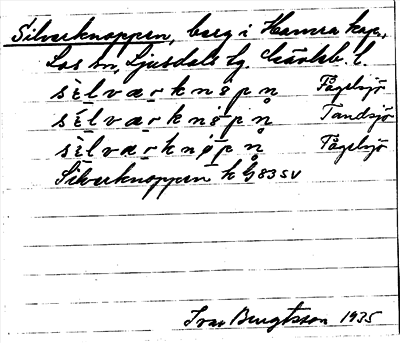 Silverknoppen, berg i Hamra kap.,
Los sn, Ljusdals tg. Gävleb. l.
sèlværknøpn̥ Fågelsjö
sèlværknøpn̥ Tandsjö
sèlværknøpn̥ Fågelsjö
Silverknoppen k G83SV
Ivar Bengtsson 1935